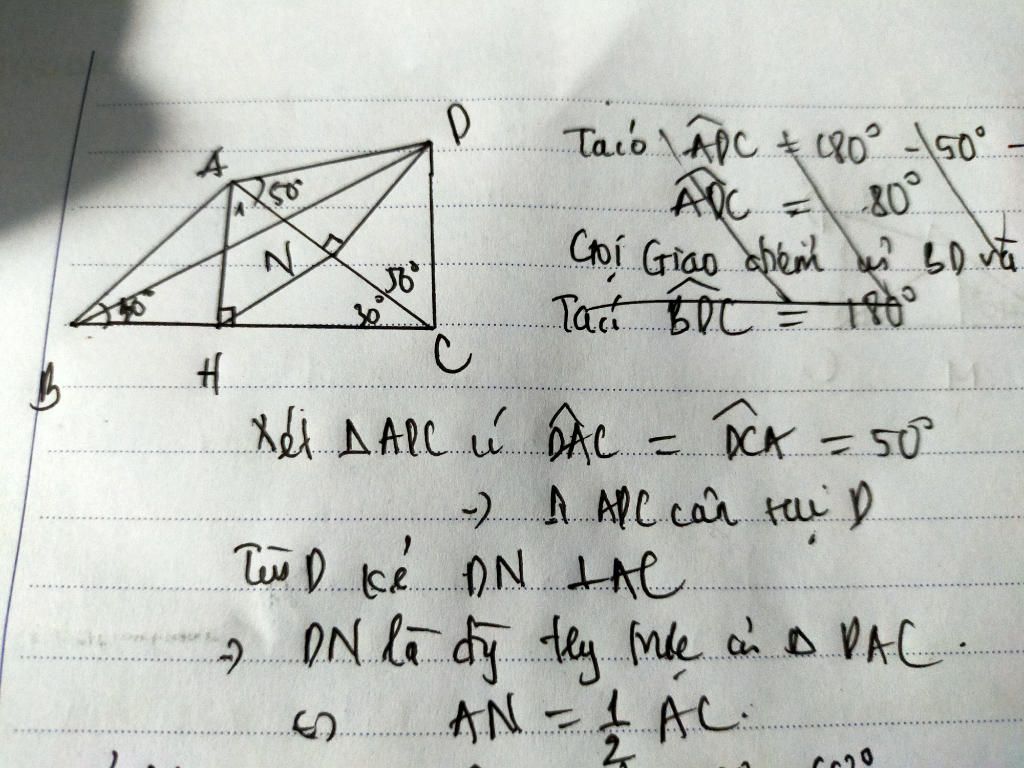 D
A
50°
1
N
50°
30°
B
H
C
Ta có \ ADC = 180° - 50° -
ADC = 80°
Gọi Giao điểm của BD và
Ta có BDC = 180°
Xét ΔADC có DAC = DCA = 50°
→ Δ ADC cân tại D
Từ D kẻ DN ⊥ AC
→ DN là đg Δ DAC.
⇔ AN = 1/2 AC.